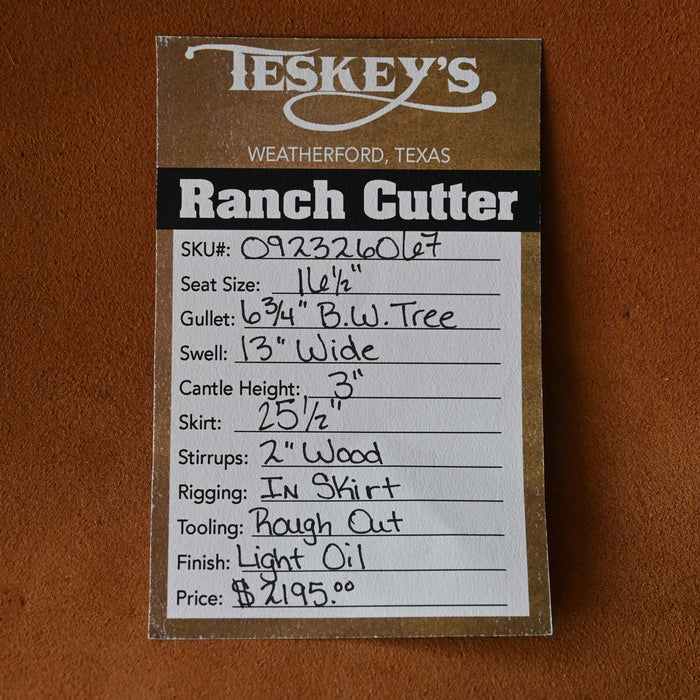 TESKEY'S
WEATHERFORD, TEXAS
Ranch Cutter
SKU#: 092326067
Seat Size: 16 1/2"
Gullet: 6 3/4" B.W. Tree
Swell: 13" Wide
Cantle Height: 3"
Skirt: 25 1/2"
Stirrups: 2" Wood
Rigging: IN Skirt
Tooling: Rough Out
Finish: Light Oil
Price: $2195.00